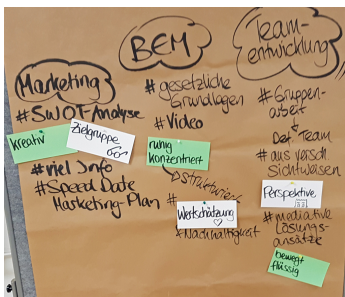 Marketing
#SWOT-Analyse
kreativ
Zielgruppe
#viel Info
#Speed Date
Marketing-Plan
BEM
#gesetzliche
Grundlagen
#Video
ruhig
konzentriert
strukturiert
#
Wertschätzung
#Nachhaltigkeit
Team-
entwicklung
#Gruppen-
arbeit
Def. Team
#aus versch.
Sichtweisen
Perspektive
#mediative
Lösungs-
ansätze
bewegt
flüssig